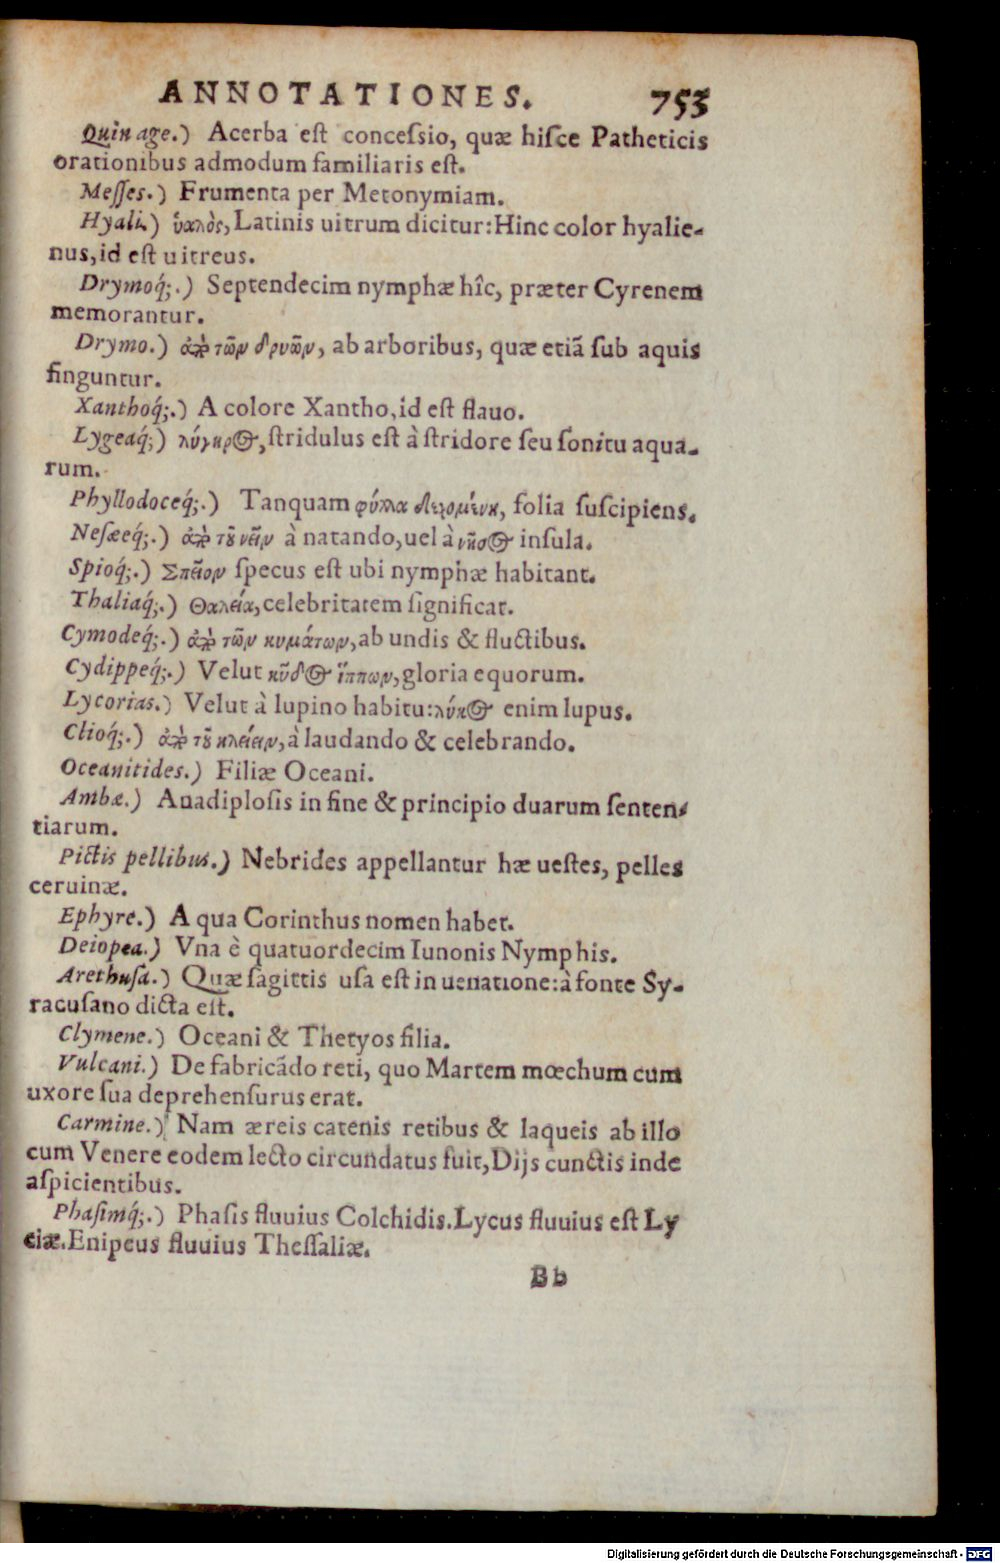 ANNOTATIONES. 753
Quin age.) Acerba eſt conceſsio, quæ hiſce Patheticis
orationibus admodum familiaris eſt.
Meſſes.) Frumenta per Metonymiam.
Hyali.) ὑαλὸς, Latinis uitrum dicitur: Hinc color hyalie-
nus, id eſt uitreus.
Drymoq́;.) Septendecim nymphæ hîc, præter Cyrenem
memorantur.
Drymo.) ἀπὸ τῶν δρυῶν, ab arboribus, quæ etiā ſub aquis
finguntur.
Xanthoq́;.) A colore Xantho, id eſt flauo.
Lygeaq́;) λύγηρος, ſtridulus eſt à ſtridore ſeu ſonitu aqua-
rum.
Phyllodoceq́;.) Tanquam φύλλα δεχομένη, folia ſuſcipiens.
Neſæeq́;.) ἀπὸ τοῦ νεῖν à natando, uel à νῆσος inſula.
Spioq́;.) Σπεῖον ſpecus eſt ubi nymphæ habitant.
Thaliaq́;.) Θαλεία, celebritatem ſignificat.
Cymodeq́;.) ἀπὸ τῶν κυμάτων, ab undis & fluctibus.
Cydippeq́;.) Velut κῦδος ἵππων, gloria equorum.
Lycorias.) Velut à lupino habitu: λύκος enim lupus.
Clioq́;.) ἀπὸ τοῦ κλείειν, à laudando & celebrando.
Oceanitides.) Filiæ Oceani.
Ambæ.) Anadiploſis in fine & principio duarum ſenten-
tiarum.
Pictis pellibus.) Nebrides appellantur hæ ueſtes, pelles
ceruinæ.
Ephyre.) A qua Corinthus nomen habet.
Deiopea.) Vna è quatuordecim Iunonis Nymphis.
Arethuſa.) Quæ ſagittis uſa eſt in uenatione: à fonte Sy-
racuſano dicta eſt.
Clymene.) Oceani & Thetyos filia.
Vulcani.) De fabricādo reti, quo Martem mœchum cum
uxore ſua deprehenſurus erat.
Carmine.) Nam æreis catenis retibus & laqueis ab illo
cum Venere eodem lecto circundatus fuit, Dijs cunctis inde
aſpicientibus.
Phaſimq́;.) Phaſis fluuius Colchidis. Lycus fluuius eſt Ly
ciæ. Enipeus fluuius Theſſaliæ.
Bb
Digitalisierung gefördert durch die Deutsche Forschungsgemeinschaft - DFG